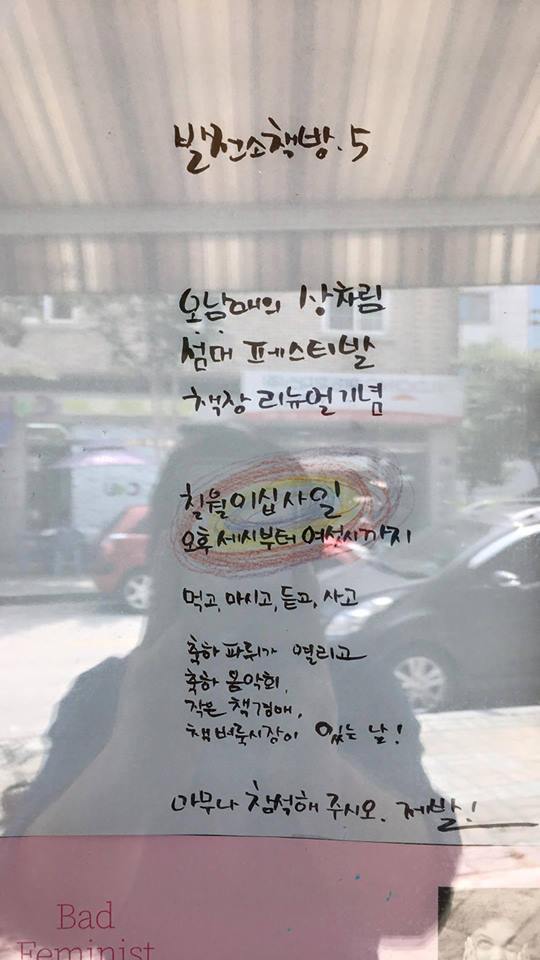 발전소책방.5
오남매의 상차림
썸머 페스티발
책장 리뉴얼기념
칠월이십사일
오후 세시부터 여섯시까지
먹고, 마시고, 듣고, 사고
축하 파뤼가 열리고
축하 음악회,
작은 책경매,
책벼룩시장이 있는 날!
아무나 참석해 주시오. 제발!
Bad
Feminist